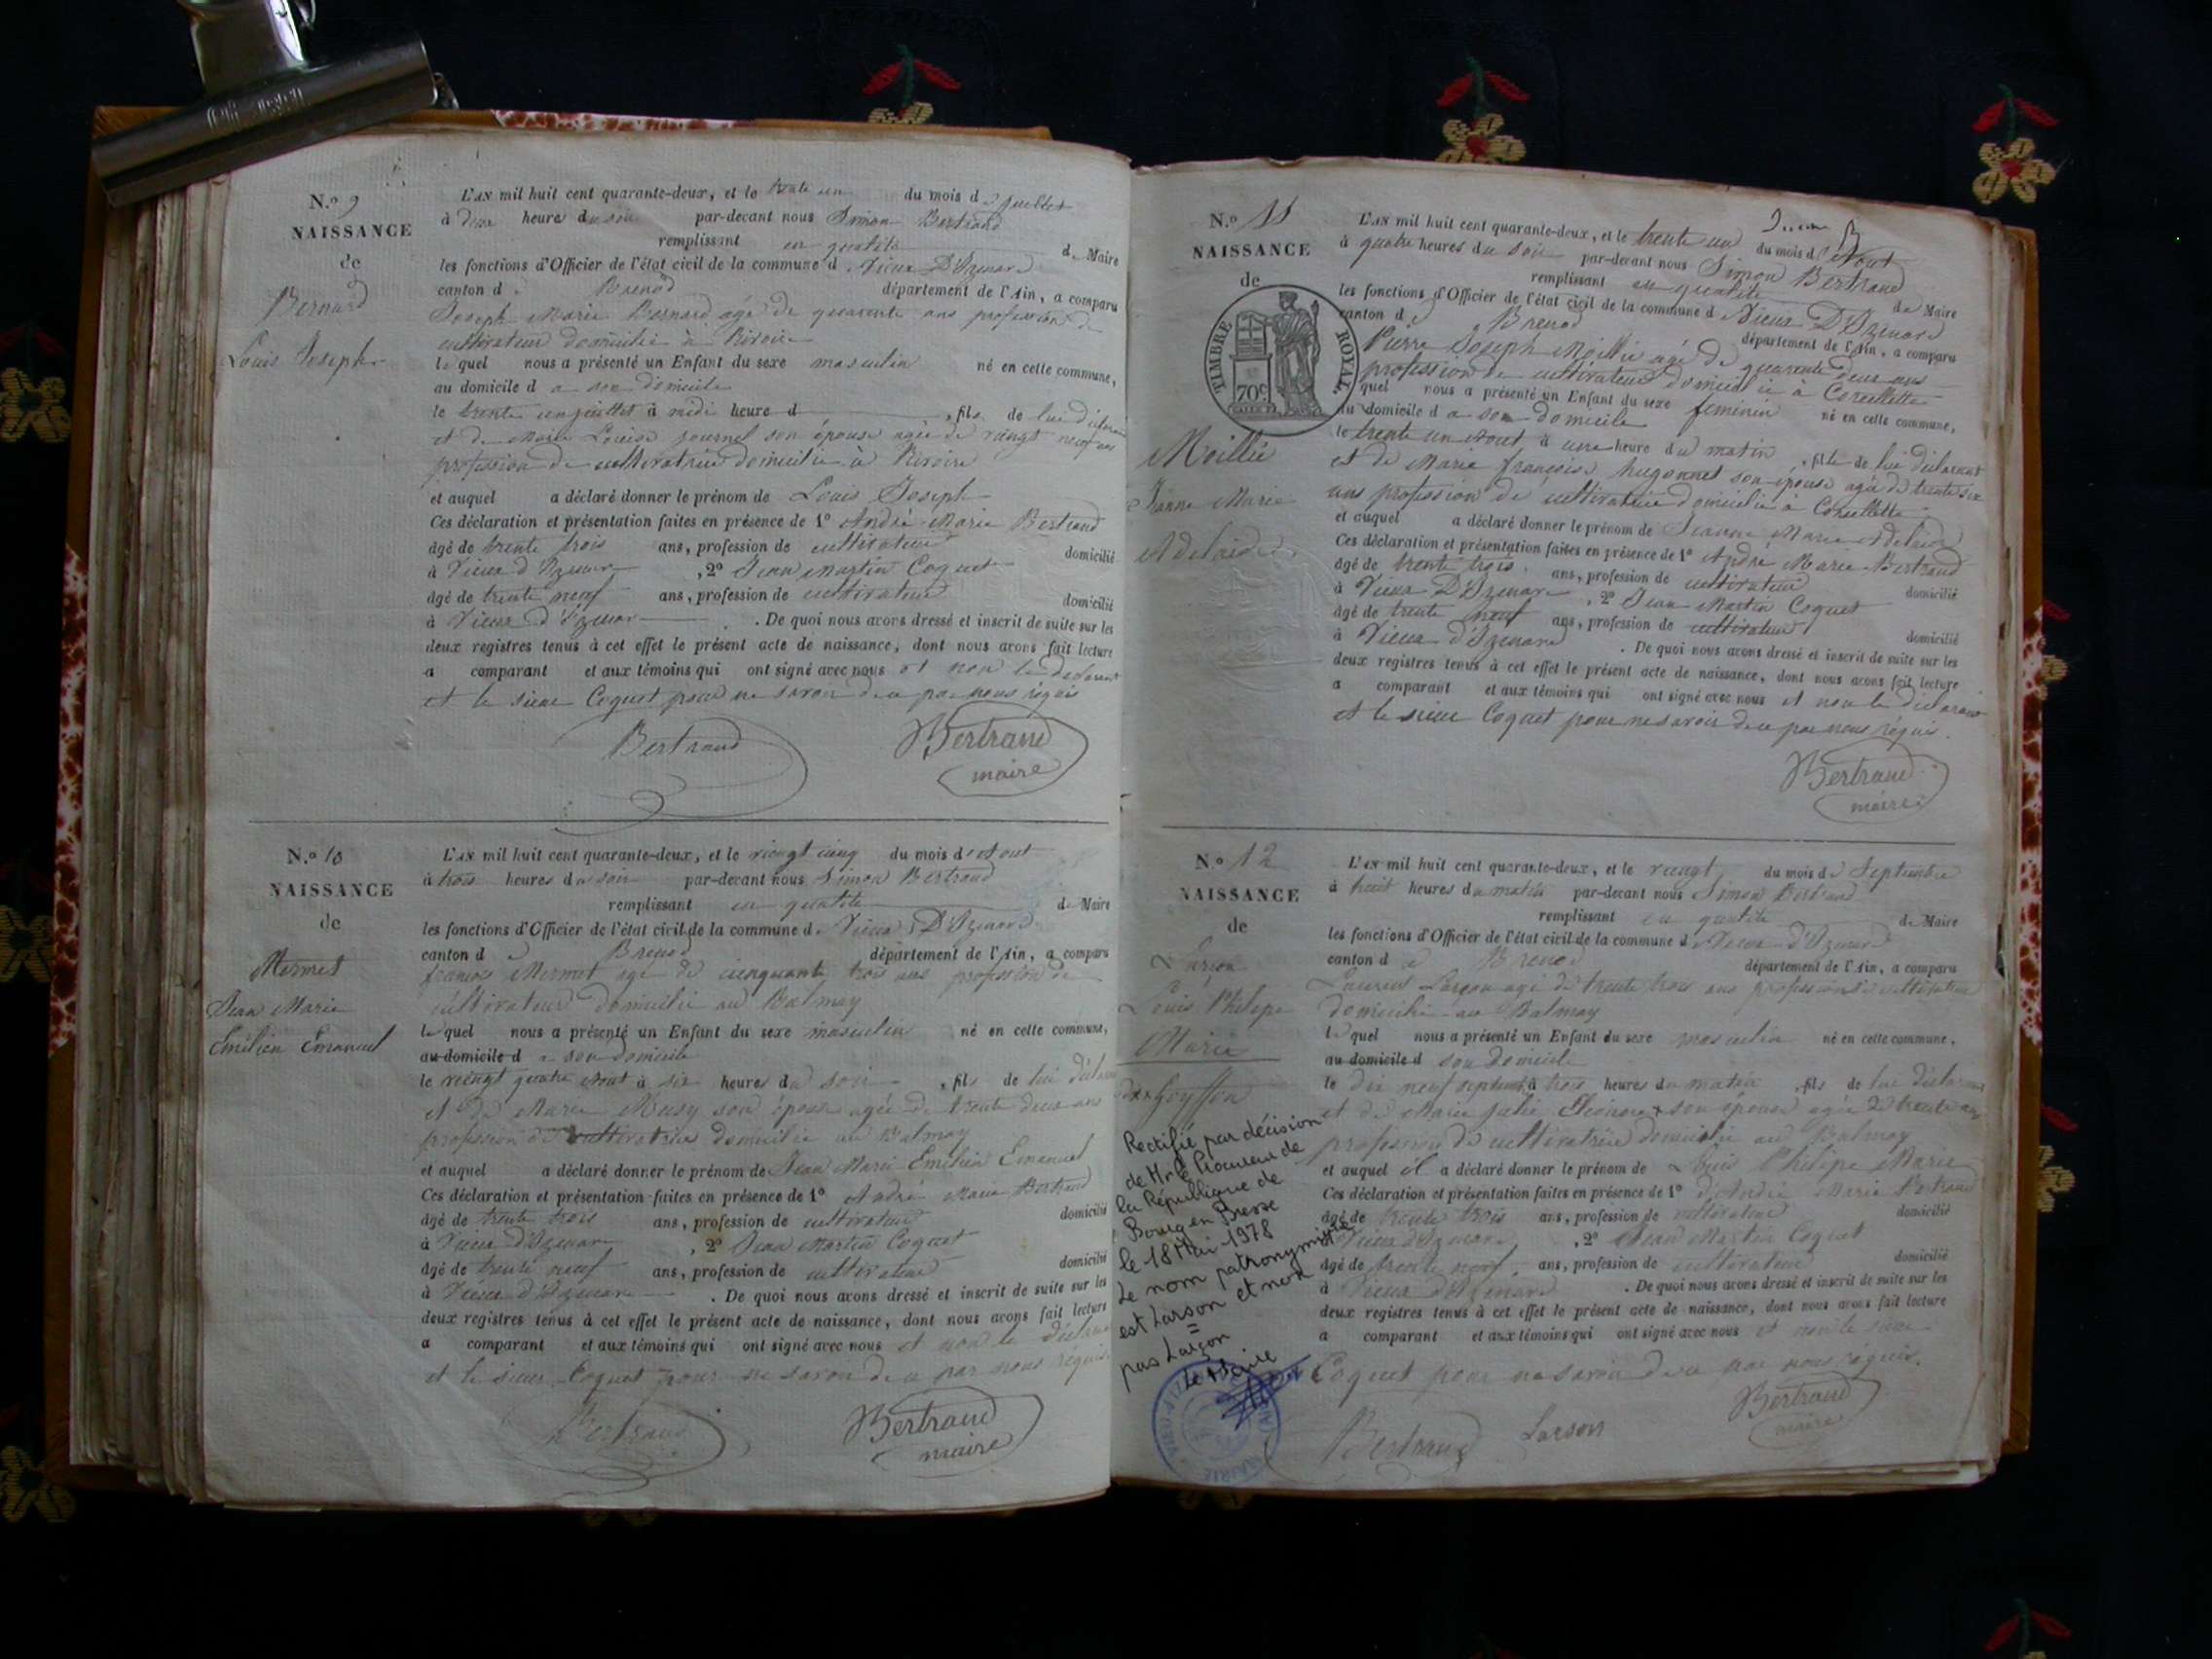 N.º 9
NAISSANCE
de
Bernard
Louis Joseph
L'AN mil huit cent quarante-deux, et le trente un du mois de juillet
à deux heures du soir par-devant nous Simon Bertrand
remplissant en qualité de Maire
les fonctions d'Officier de l'état civil de la commune de Vieux D'Izenave
canton de Brenod département de l'Ain, a comparu
Joseph Marie Bernard agé de quarante ans profession de
cultivateur domicilié à
le quel nous a présenté un Enfant du sexe masculin né en cette commune,
au domicile d a son domicile
le trente un juillet à midi heure d , fils de lui déclarant
et de Marie Louise journel son épouse agée de vingt neuf ans
profession de cultivatrice domicilié à
et auquel a déclaré donner le prénom de Louis Joseph
Ces déclaration et présentation faites en présence de 1º André Marie Bertrand
âgé de trente trois ans, profession de cultivateur domicilié
à Vieux d'Izenave , 2º Jean Martin Coquet
âgé de trente neuf ans, profession de cultivateur domicilié
à Vieux d'Izenave . De quoi nous avons dressé et inscrit de suite sur les
deux registres tenus à cet effet le présent acte de naissance, dont nous avons fait lecture
a comparant et aux témoins qui ont signé avec nous et non le declarant
et le sieur Coquet pour ne savoir de ce par nous réquis
Bertrand Bertrand
maire
N.º 10
NAISSANCE
de
Mermet
Jean Marie
Emilien Emanuel
L'AN mil huit cent quarante-deux, et le vingt cinq du mois d'Aout
à trois heures du soir par-devant nous Simon Bertrand
remplissant en qualité de Maire
les fonctions d'Officier de l'état civil de la commune de Vieux D'Izenave
canton de Brenod département de l'Ain, a comparu
Mermet agé de cinquante trois ans profession de
cultivateur domicilié au Balmay
le quel nous a présenté un Enfant du sexe masculin né en cette commune,
au domicile d a son domicile
le vingt quatre Aout à six heures du soir , fils de lui déclarant
et de Marie son épouse agée de trente deux ans
profession de cultivatrice domicilié au Balmay
et auquel a déclaré donner le prénom de Jean Marie Emilien Emanuel
Ces déclaration et présentation faites en présence de 1º André Marie Bertrand
âgé de trente trois ans, profession de cultivateur domicilié
à Vieux d'Izenave , 2º Jean Martin Coquet
âgé de trente neuf ans, profession de cultivateur domicilié
à Vieux d'Izenave . De quoi nous avons dressé et inscrit de suite sur les
deux registres tenus à cet effet le présent acte de naissance, dont nous avons fait lecture
a comparant et aux témoins qui ont signé avec nous et non le déclarant
et le sieur Coquet pour ne savoir de ce par nous réquis
Bertrand Bertrand
maire
N.º 11
NAISSANCE
de
TIMBRE ROYAL
70 c
Moillie
Jeanne Marie
Adelaide
L'AN mil huit cent quarante-deux, et le trente un du mois d'Aout
à quatre heures du soir par-devant nous Simon Bertrand
remplissant en qualité de Maire
les fonctions d'Officier de l'état civil de la commune de Vieux D'Izenave
canton de Brenod département de l'Ain, a comparu
Pierre Joseph Moillie agé de quarante deux ans
profession de cultivateur domicilié à Corcellette
quel nous a présenté un Enfant du sexe feminin né en cette commune,
au domicile d a son domicile
le trente un Aout à une heure du matin , fille de lui déclarant
et de Marie françoise hugonnet son épouse agée de trente six
ans profession de cultivatrice domicilié à Corcellette
et auquel a déclaré donner le prénom de Jeanne Marie Adelaide
Ces déclaration et présentation faites en présence de 1º André Marie Bertrand
âgé de trente trois ans, profession de cultivateur domicilié
à Vieux D'Izenave , 2º Jean Martin Coquet
âgé de trente neuf ans, profession de cultivateur domicilié
à Vieux d'Izenave . De quoi nous avons dressé et inscrit de suite sur les
deux registres tenus à cet effet le présent acte de naissance, dont nous avons fait lecture
a comparant et aux témoins qui ont signé avec nous et non le déclarant
et le sieur Coquet pour ne savoir de ce par nous réquis.
Bertrand
maire
Nº 12
NAISSANCE
de
Larçon
Louis Philipe
Marie
Goyffon
Rectifié par décision
de Mr le Procureur de
la République de
Bourg en Bresse
le 18 Mai 1978
le nom patronymique
est Larson et non
pas Larçon
Le Maire
L'AN mil huit cent quarante-deux, et le vingt du mois de Septembre
à huit heures du matin par-devant nous Simon Bertrand
remplissant en qualité de Maire
les fonctions d'Officier de l'état civil de la commune de Vieux d'Izenave
canton de Brenod département de l'Ain, a comparu
Laurent Larçon agé de trente trois ans profession de cultivateur
domicilié au Balmay
le quel nous a présenté un Enfant du sexe masculin né en cette commune,
au domicile d son domicile
le dix neuf septembre à trois heures du matin , fils de lui déclarant
et de Marie julie Eléonore x son épouse agée de trente
profession de cultivatrice domicilié au Balmay
et auquel il a déclaré donner le prénom de Louis Philipe Marie
Ces déclaration et présentation faites en présence de 1º d'André Marie Bertrand
âgé de trente trois ans, profession de cultivateur domicilié
à Vieux d'Izenave , 2º Jean Martin Coquet
âgé de trente neuf ans, profession de cultivateur domicilié
à Vieux d'Izenave . De quoi nous avons dressé et inscrit de suite sur les
deux registres tenus à cet effet le présent acte de naissance, dont nous avons fait lecture
a comparant et aux témoins qui ont signé avec nous et non le sieur
Coquet pour ne savoir de ce par nous réquis.
Bertrand Larson Bertrand
maire